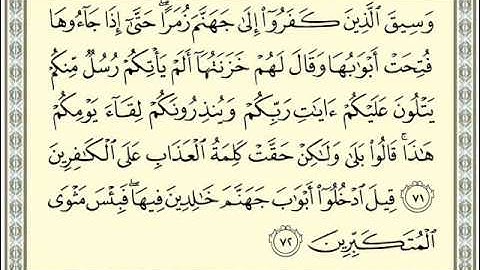 وَسِيقَ ٱلَّذِينَ كَفَرُوٓا۟ إِلَىٰ جَهَنَّمَ زُمَرًا ۖ حَتَّىٰٓ إِذَا جَآءُوهَا
فُتِحَتْ أَبْوَٰبُهَا وَقَالَ لَهُمْ خَزَنَتُهَآ أَلَمْ يَأْتِكُمْ رُسُلٌ مِّنكُمْ
يَتْلُونَ عَلَيْكُمْ ءَايَٰتِ رَبِّكُمْ وَيُنذِرُونَكُمْ لِقَآءَ يَوْمِكُمْ
هَٰذَا ۚ قَالُوا۟ بَلَىٰ وَلَٰكِنْ حَقَّتْ كَلِمَةُ ٱلْعَذَابِ عَلَى ٱلْكَٰفِرِينَ
٧١ قِيلَ ٱدْخُلُوٓا۟ أَبْوَٰبَ جَهَنَّمَ خَٰلِدِينَ فِيهَا ۖ فَبِئْسَ مَثْوَى
ٱلْمُتَكَبِّرِينَ ٧٢